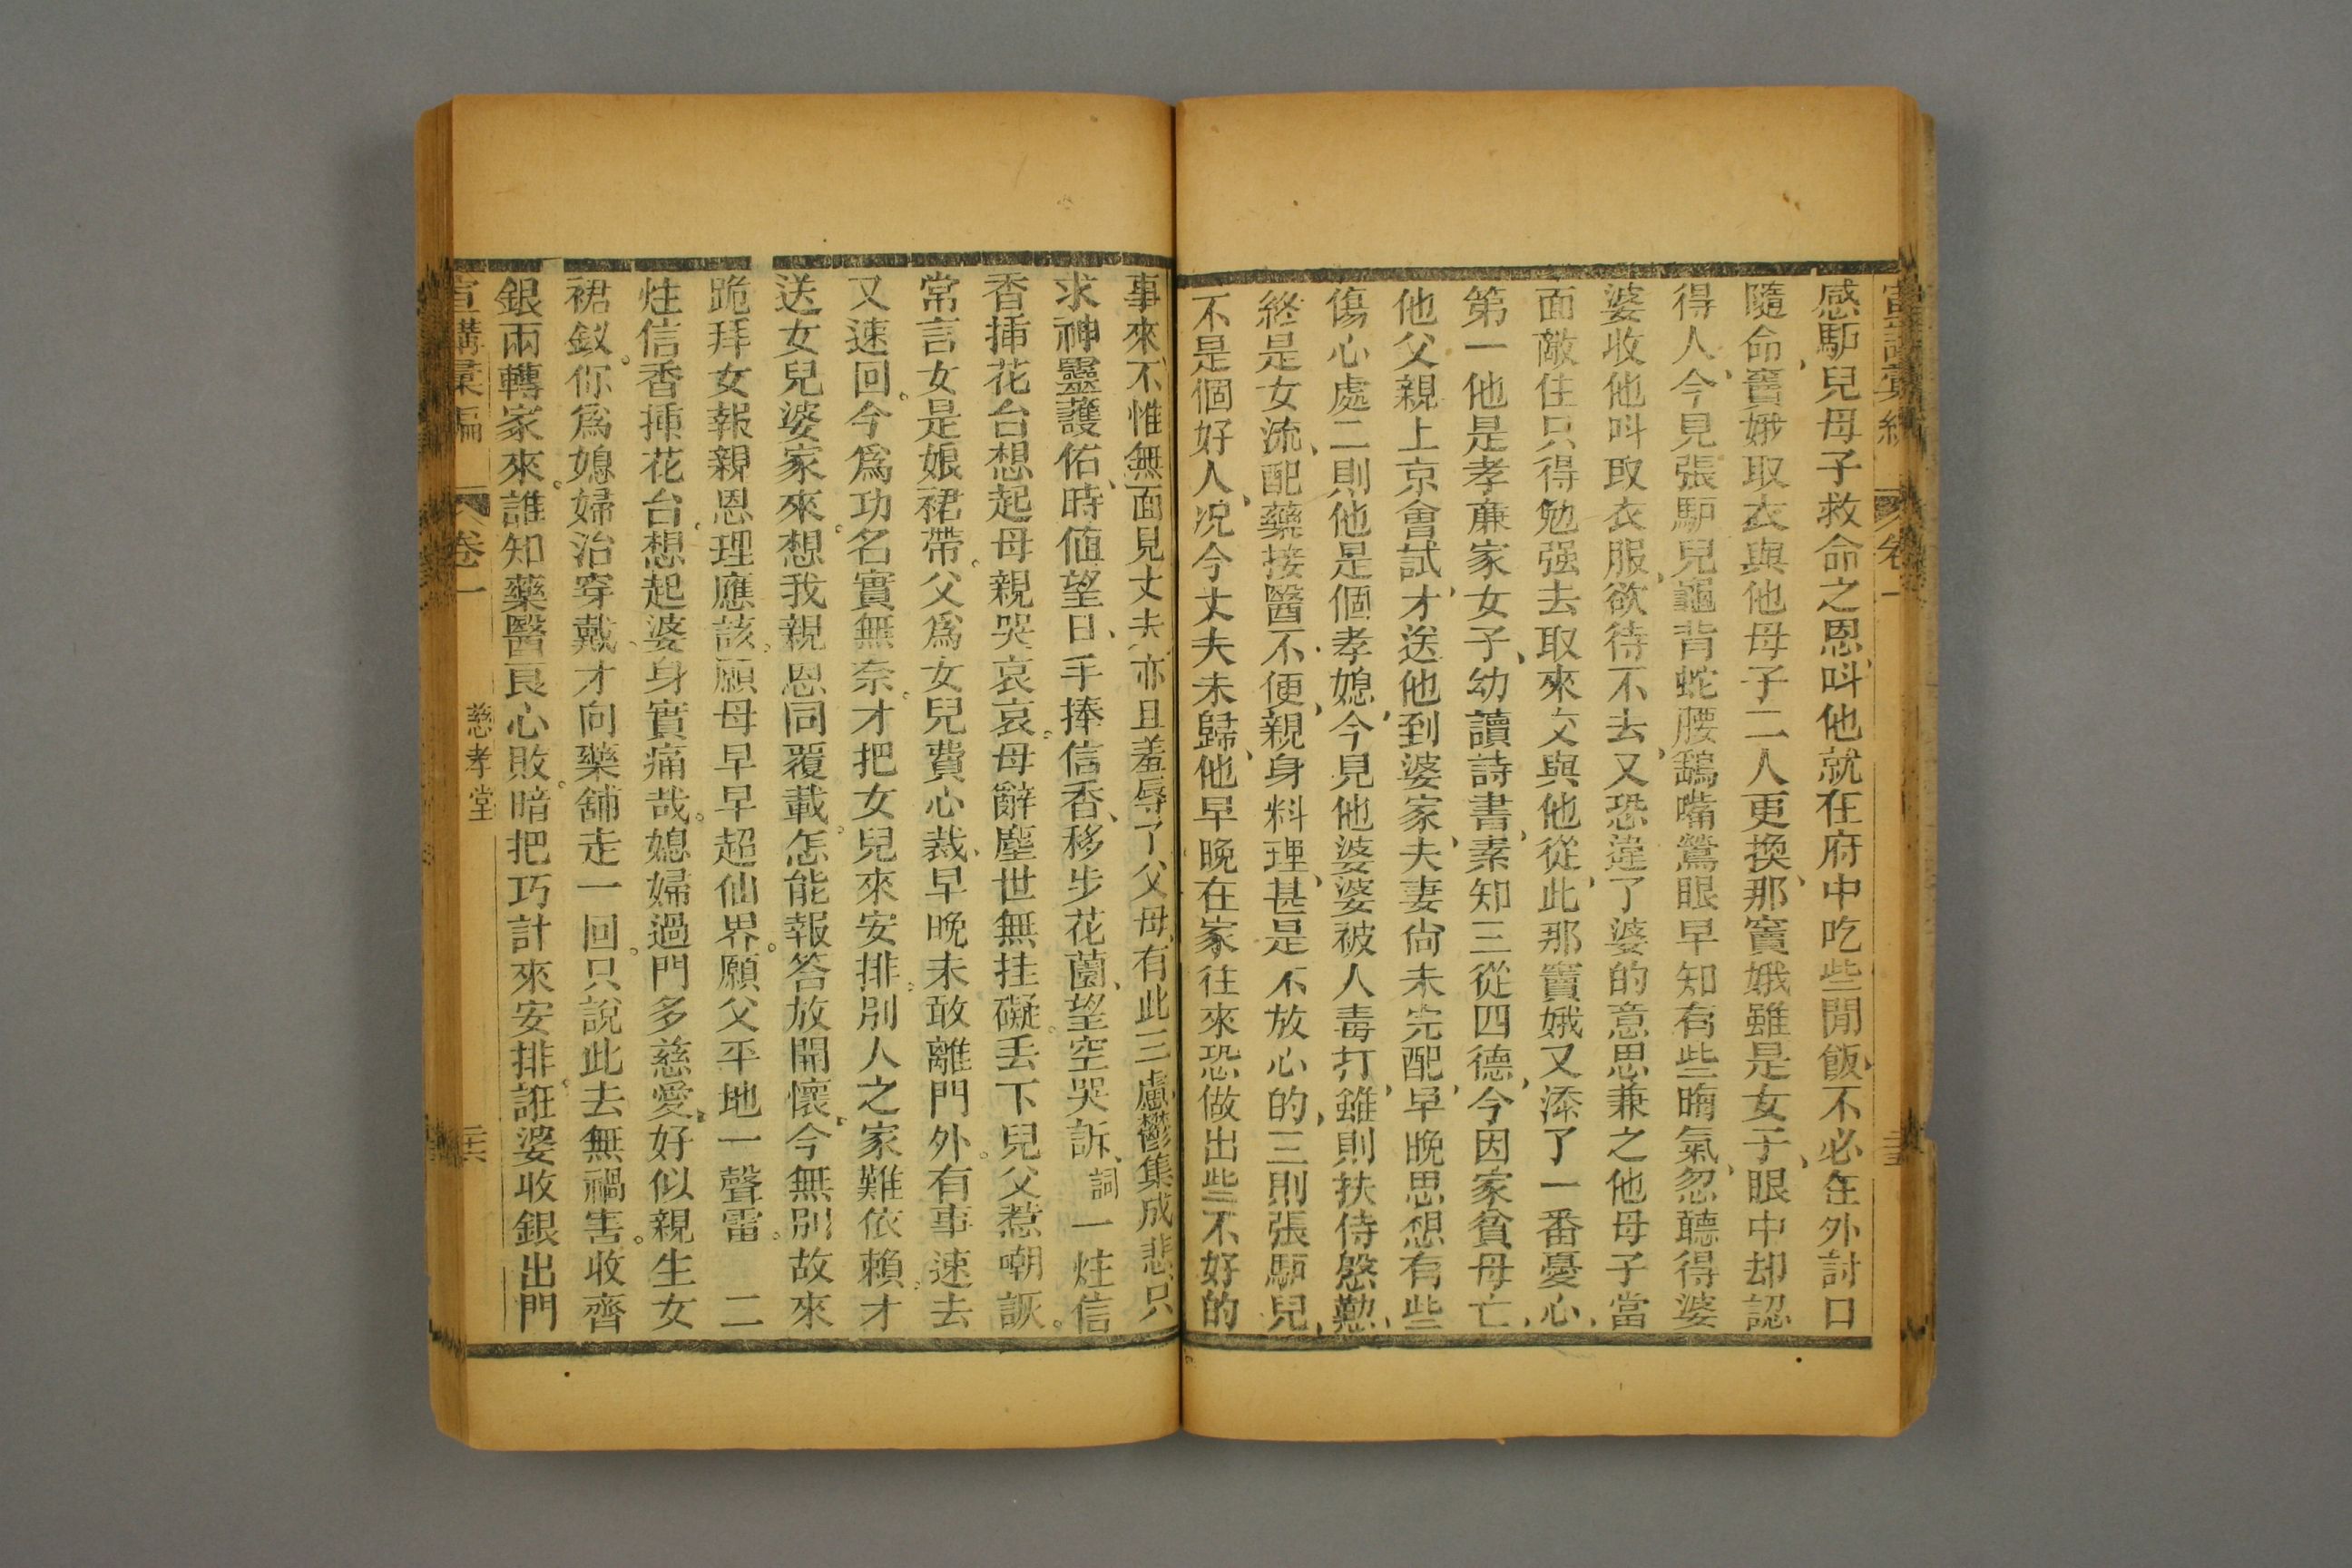 感馿兒母子救命之恩、呌他就在府中吃些閒飯、不必在外討口
隨命、竇娥取衣與他母子二人更換、那竇娥雖是女子、眼中却認
得人、今見張馿兒龜背蛇腰鷂嘴鶯眼早知有些晦氣、忽聽得婆
婆收他呌取衣服、欲待不去、又恐違了婆的意思兼之他母子當
面敵住只得勉强去取來交與他從此、那竇娥又添了一番憂心、
第一他是孝亷家女子、幼讀詩書、素知三從四德、今因家貧母亡、
他父親上京會試、才送他到婆家、夫妻尙未完配、早晚思想有些
傷心處二則他是個孝媳、今見他婆婆被人毒打、雖則扶侍慇懃、
終是女流、配藥接醫不便、親身料理、甚是不放心的、三則張馿兒、
不是個好人、况今丈夫未歸、他早晚在家往來恐做出些不好的
事來、不惟無面見丈夫、亦且羞辱了父母、有此三慮、鬱集成悲、只
求神靈護佑、時值望日、手捧信香、移步花薗、望空哭訴、詞一炷信
香揷花台想起母親哭哀哀。母辭塵世無挂礙。丢下兒父惹嘲詼。
常言女是娘裙帶。父爲女兒費心裁、早晚未敢離門外。有事速去
又速回。今爲功名實無奈。才把女兒來安排。別人之家難依賴。才
送女兒婆家來。想我親恩同覆載。怎能報答放開懷。今無別故來
跪拜女報親恩理應該。願母早早超仙界。願父平地一聲雷。二
炷信香揷花台。想起婆身實痛哉。媳婦過門多慈愛。好似親生女
裙釵。你爲媳婦治穿戴、才向藥舖走一回。只說此去無禍害。收齊
銀兩轉家來。誰知藥醫良心敗。暗把巧計來安排。誑婆收銀出門
宣講彙編
卷一
慈孝堂